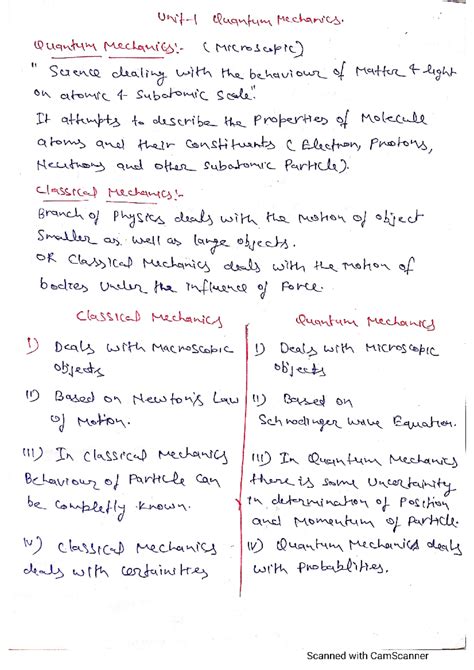 Unit-1 Quantum Mechanics.
Quantum Mechanics:- (Microscopic)
"Science dealing with the behaviour of Matter & light
on atomic & Subatomic Scale"
It attempts to describe the Properties of Molecule
atoms and their Constituents (Electron, Protons,
Neutrons and other Subatomic Particle).
Classical Mechanics:-
Branch of Physics deals with the Motion of object
Smaller as well as large objects.
OR Classical Mechanics deals with the Motion of
bodies Under the influence of Force.
Classical Mechanics
I) Deals with Macroscopic
objects
II) Based on Newton's Law
of Motion.
III) In Classical Mechanics
Behaviour of Particle Can
be completly Known.
IV) Classical Mechanics
deals with certainities
Quantum Mechanics
I) Deals with Microscopic
objects
II) Based on
Schrodinger Wave Equation.
III) In Quantum Mechanics
there is some Uncertainity
in determination of Position
and Momentum of Particle.
IV) Quantum Mechanics deals
with Probablities.
Scanned with CamScanner